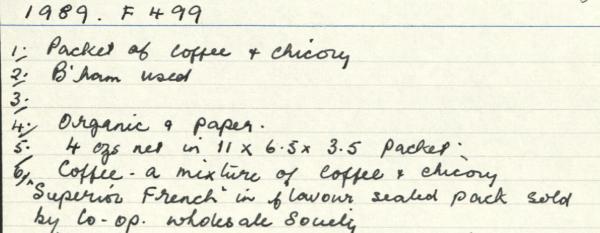 1989. F 499
1. Packet of Coffee & chicory
2. B'ham used
3.
4. Organic & paper.
5. 4 ozs net in 11 x 6.5 x 3.5 Packet.
6. Coffee - a mixture of Coffee & chicory
"Superior French" in flavour sealed pack sold
by Co-op. wholesale Society